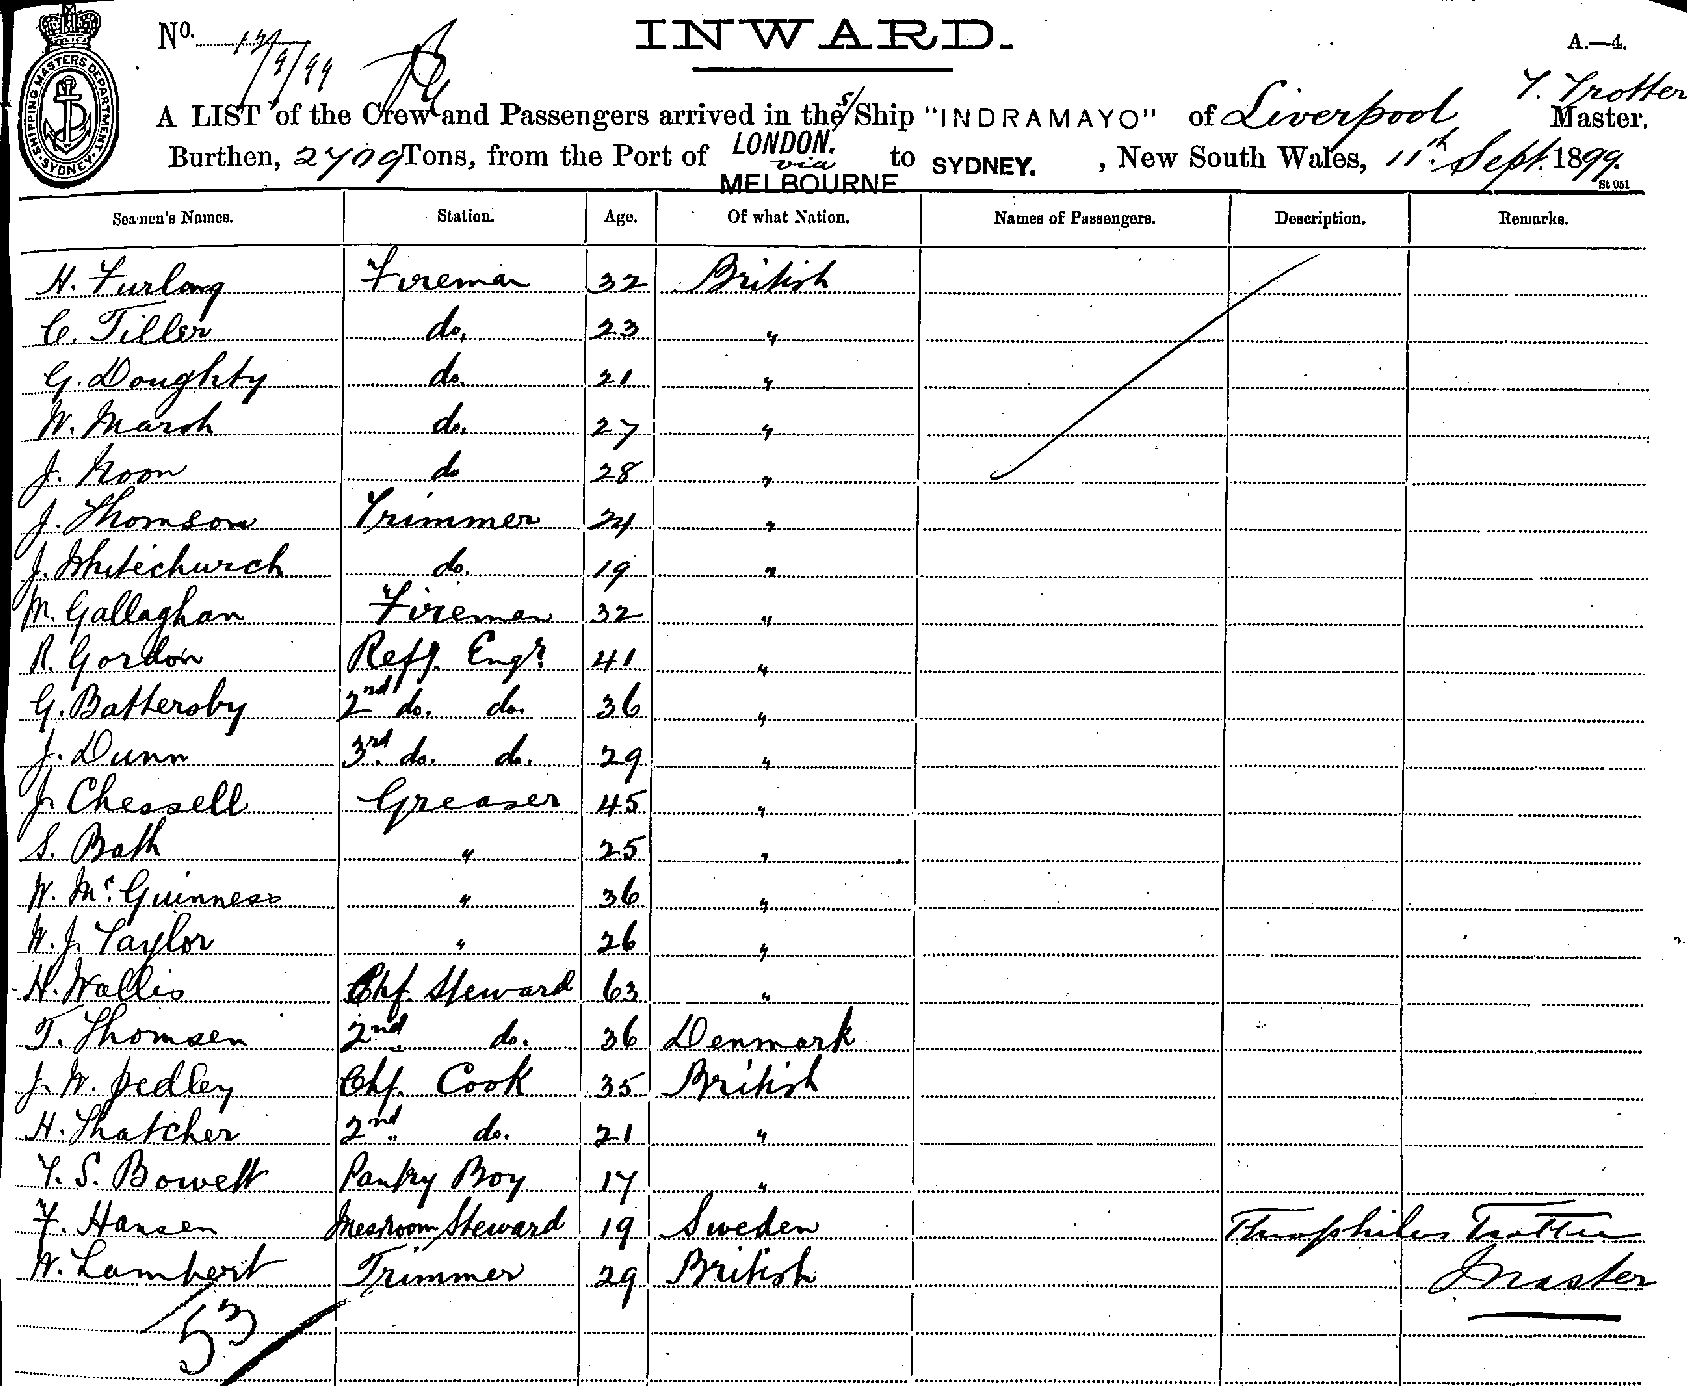 SHIPPING MASTERS DEPARTMENT SYDNEY
No. 13/9/99
INWARD.
A.—4.
A LIST of the Crew and Passengers arrived in the s/Ship "INDRAMAYO" of Liverpool T. Trotter Master.
Burthen, 2709 Tons, from the Port of LONDON. via MELBOURNE to SYDNEY. , New South Wales, 11th Sept. 1899.
St 051
Seamen's Names. Station. Age. Of what Nation. Names of Passengers. Description. Remarks.
H. Furlong Fireman 32 British
C. Tiller do. 23 "
G. Doughty do. 21 "
W. Marsh do. 27 "
J. Noon do 28 "
J. Thomson Trimmer 24 "
J. Whitechurch do. 19 "
M. Gallaghan Fireman 32 "
R. Gordon Refg. Engr. 41 "
G. Battersby 2nd do. do. 36 "
J. Dunn 3rd. do. do. 29 "
J. Chessell Greaser 45 "
S. Bath " 25 "
W. McGuinness " 36 "
W. J. Taylor " 26 "
H. Wallis Chf. Steward 63 "
T. Thomsen 2nd do. 36 Denmark
J. W. Pedley Chf. Cook 35 British
H. Thatcher 2nd do. 21 "
F. S. Bowett Pantry Boy 17 "
F. Hansen Messroom Steward 19 Sweden Theophilus Trotter
W. Lambert Trimmer 29 British Master
53